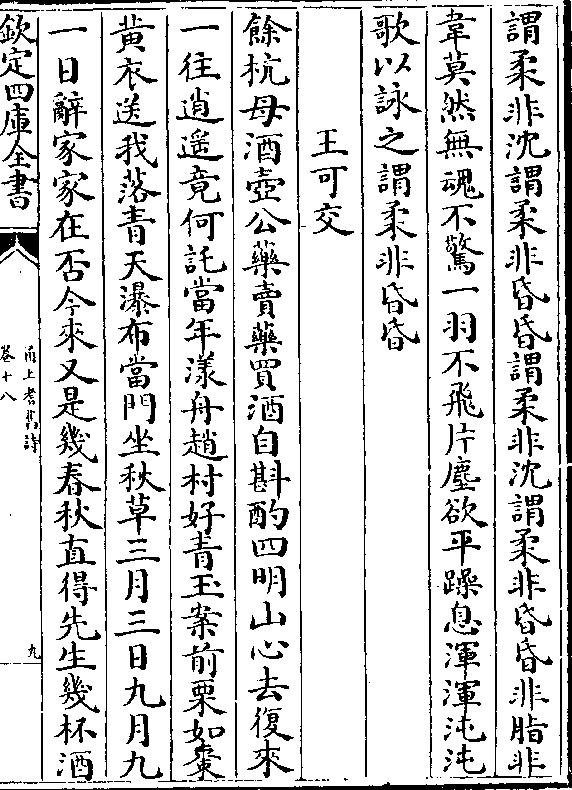 謂柔非沈謂柔非昏昏謂柔非沈謂柔非昏昏非脂非
韋莫然無魂不驚一羽不飛片塵欲平躁息渾渾沌沌
歌以詠之謂柔非昏昏
王可交
餘杭母酒壺公藥賣藥買酒自斟酌四明山心去復來
一往逍遥竟何託當年漾舟趙村好青玉案前栗如棗
黄衣送我落青天瀑布當門坐秋草三月三日九月九
一日辭家家在否今來又是幾春秋直得先生幾杯酒
欽定四庫全書
甬上耆舊詩
卷十八
九